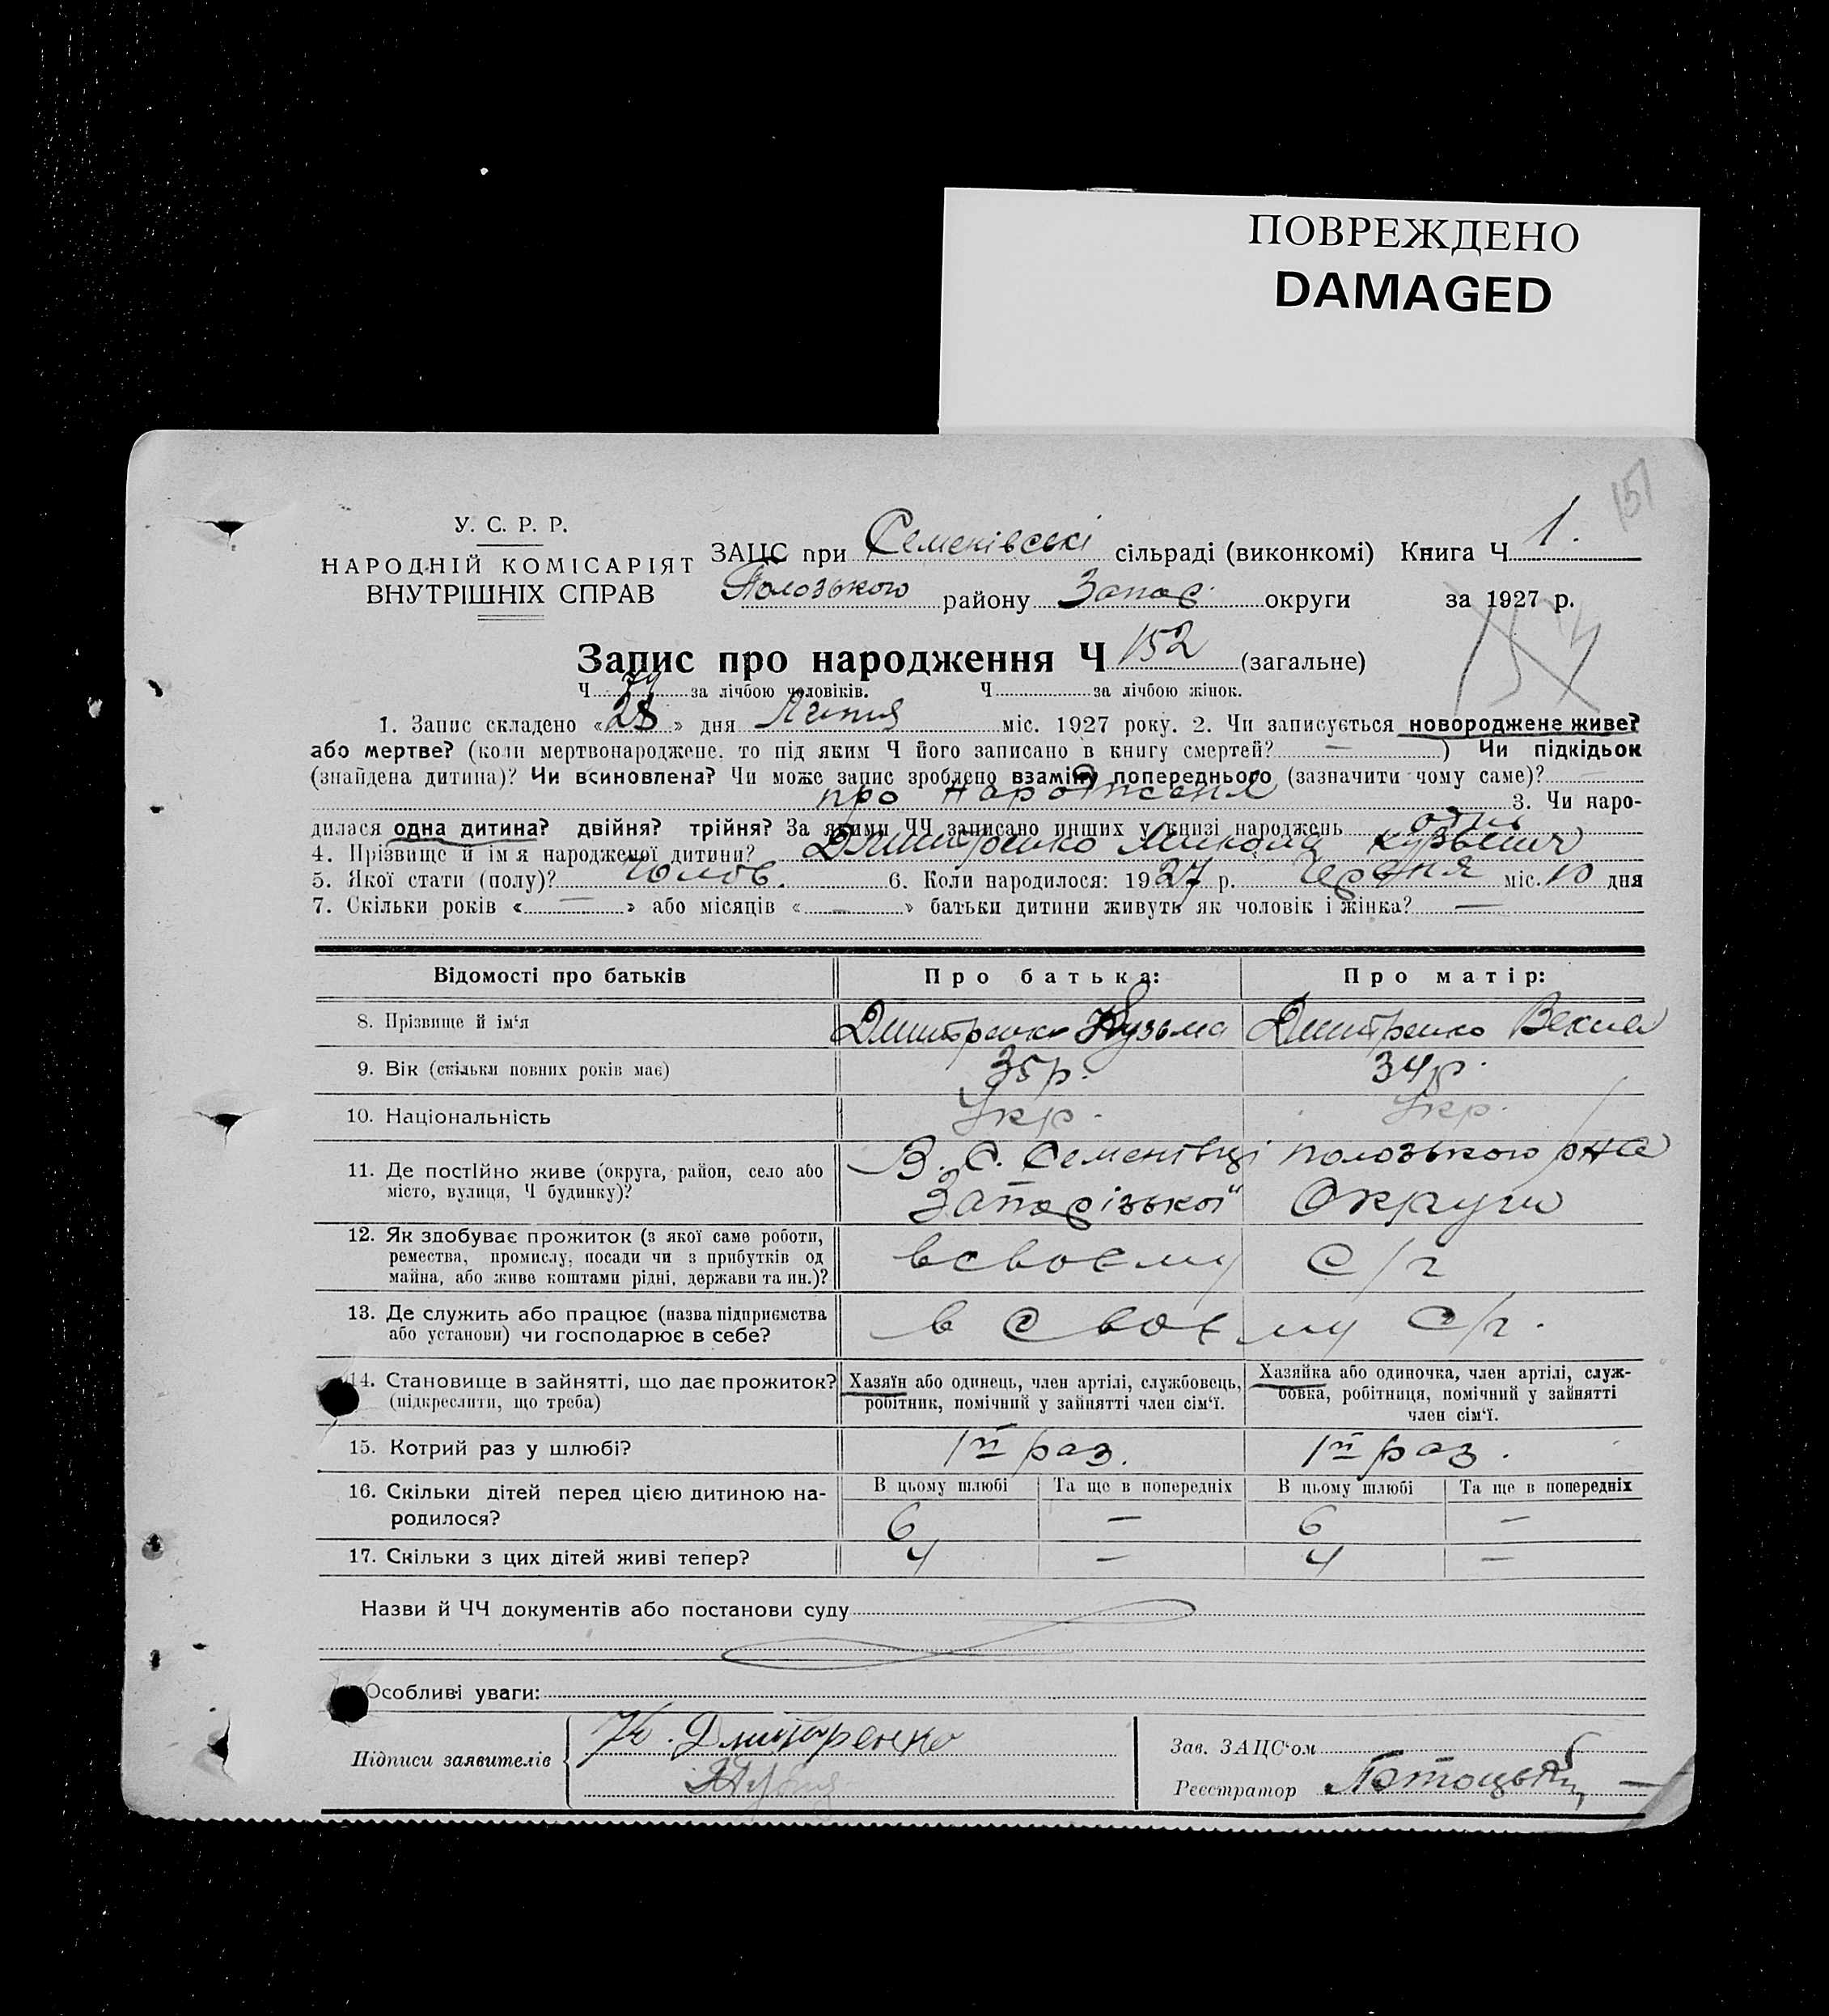 ПОВРЕЖДЕНО
DAMAGED
151
У. С. Р. Р.
НАРОДНІЙ КОМІСАРІЯТ
ВНУТРІШНІХ СПРАВ
ЗАЦС при Семенівські сільраді (виконкомі) Книга Ч 1.
Полозького району Запор. округи за 1927 р.
Запис про народження Ч 152 (загальне)
Ч 79 за лічбою чоловіків. Ч за лічбою жінок.
1. Запис складено «28» дня Липня міс. 1927 року. 2. Чи записується новороджене живе?
або мертве? (коли мертвонароджене, то під яким Ч його записано в книгу смертей? — ) Чи підкідьок
(знайдена дитина)? Чи всиновлена? Чи може запис зроблено взаміну попереднього (зазначити чому саме)? —
про народженя 3. Чи наро-
дилася одна дитина? двійня? трійня? За якими ЧЧ записано инших у книзі народжень
4. Прізвище й ім'я народженої дитини? Дмитренко Микола Кузьмич
5. Якої стати (полу)? Чолов. 6. Коли народилося: 1927 р. Червня міс. 10 дня
7. Скільки років «—» або місяців «—» батьки дитини живуть як чоловік і жінка? —
Відомості про батьків Про батька: Про матір:
8. Прізвище й ім'я Дмитренко Кузьма Дмитренко Векла
9. Вік (скільки повних років має) 35 р. 34 р.
10. Національність Укр. Укр.
11. Де постійно живе (округа, район, село або В. С. Семенівці полозького р-на
місто, вулиця, Ч будинку)? Запорізької округи
12. Як здобуває прожиток (з якої саме роботи,
ремества, промислу, посади чи з прибутків од всвоєму с/г
майна, або живе коштами рідні, держави та ин.)?
13. Де служить або працює (назва підприємства
або установи) чи господарює в себе? в своєму с/г.
14. Становище в зайнятті, що дає прожиток? Хазяїн або одинець, член артілі, службовець, Хазяйка або одиночка, член артілі, служ-
(підкреслити, що треба) робітник, помічний у зайнятті член сім'ї. бовка, робітниця, помічний у зайнятті
член сім'ї.
15. Котрий раз у шлюбі? 1й раз. 1й раз.
16. Скільки дітей перед цією дитиною на- В цьому шлюбі Та ще в попередніх В цьому шлюбі Та ще в попередніх
родилося? 6 — 6 —
17. Скільки з цих дітей живі тепер? 4 — 4 —
Назви й ЧЧ документів або постанови суду
Особливі уваги:
Підписи заявителів К. Дмитренко
Зав. ЗАЦС'ом
Реєстратор Потоцький